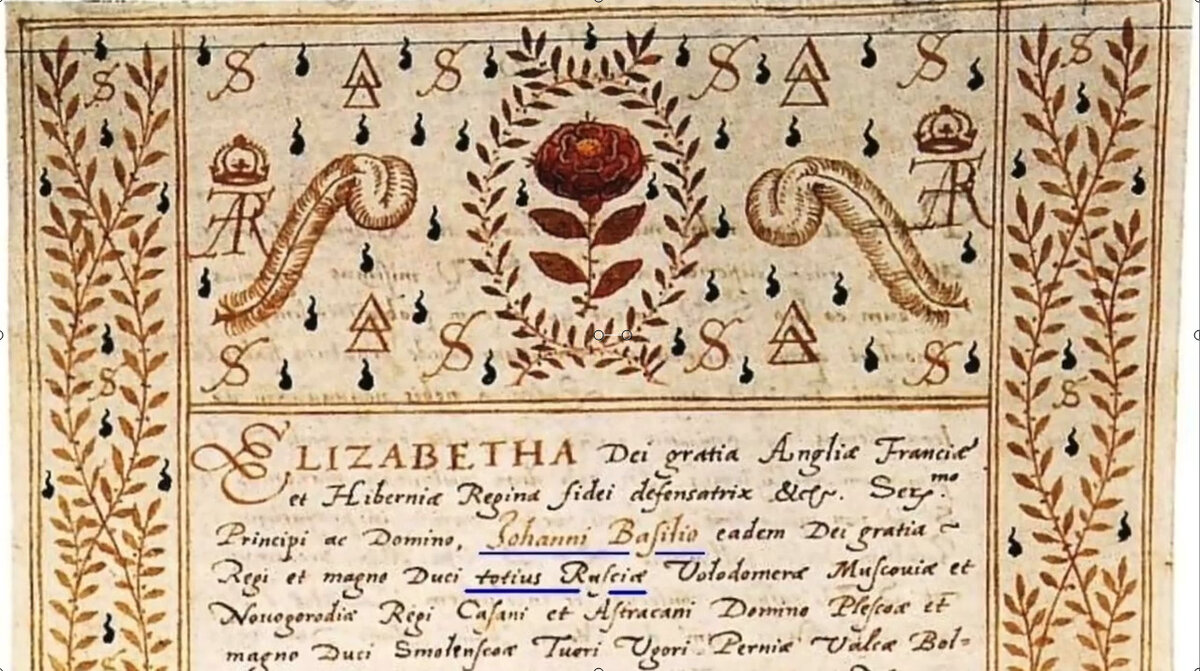 ELIZABETHA Dei gratia Angliæ Franciæ
et Hiberniæ Regina fidei defensatrix &c. Ser.mo
Principi ac Domino, Johanni Basilio eadem Dei gratia
Regi et magno Duci totius Rusciæ Volodomeræ Muscouiæ et
Nouogorodiæ Regi Casani et Astracani Domino Plescoæ et
magno Duci Smolenscoæ Tueri Vgori Permiæ Valcæ Bol=